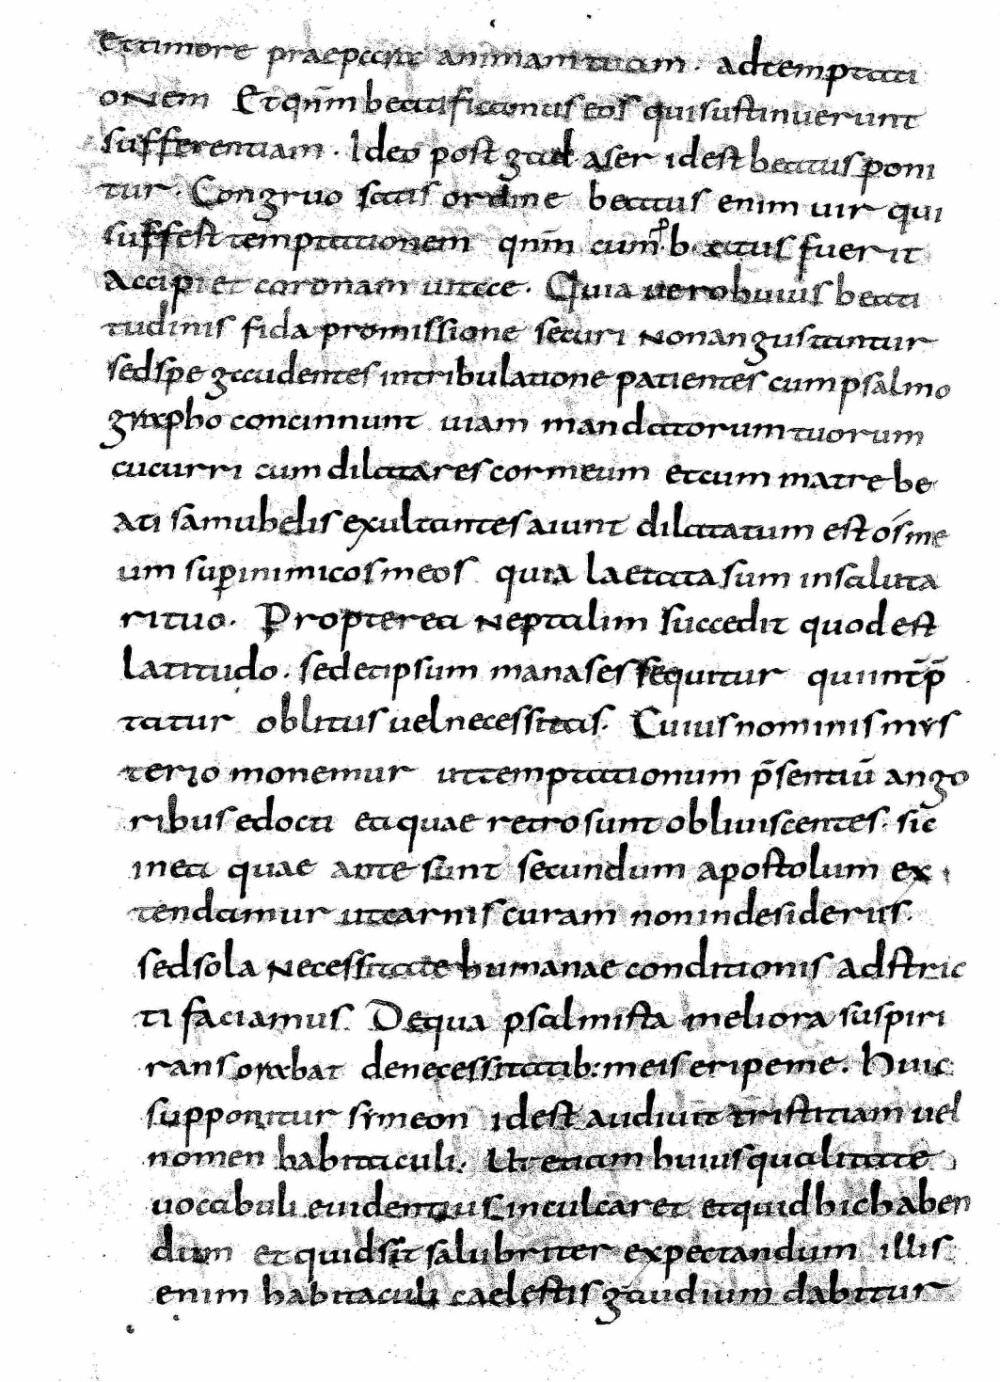 Et timore praepara animam tuam . ad temptati
onem Et qnm̄ beatificamus eos qui sustinuerunt
sufferentiam . Ideo post gad aser idest beatus poni
tur . Congruo satis ordine beatus enim uir qui
suffest temptationem qnm̄ cum p̱b atus fuerit
Accipiet coronam uitae . Quia uero huius beati
tudinis fida promissione securi non angustantur
sed spe gaudentes in tribulatione patientes cum psalmo
grapho concinnunt uiam mandatorum tuorum
cucurri cum dilatares cor meum et cum matre be
ati samuhelis exultantes aiunt dilatatum est os me
um sup inimicos meos quia laetata sum in saluta
ri tuo . Propterea neptalim succedit quod est
latitudo . sed et ipsum manases sequitur qui int̄p̄
tatur oblitus uel necessitas . Cuius nominis mys
terio monemur ut temptationum p̄sentiū ango
ribus edocti ea quae retro sunt obliuiscentes . sic
in ea quae ante sunt secundum apostolum ex
tendamur ut carnis curam non in desiderus .
sed sola necessitate humanae conditionis adstric
ti faciamus . De qua psalmista meliora suspiri
rans orabat de necessitatib: meis eripe me . Huic
supponitur symeon idest audiuit tristitiam uel
nomen habitaculi . Ut etiam huius qualitate
uocabuli euidentius inculcaret et quid hic haben
dum et quid sit salubriter expectandum illis
enim habitaculi caelestis gaudium dabitur